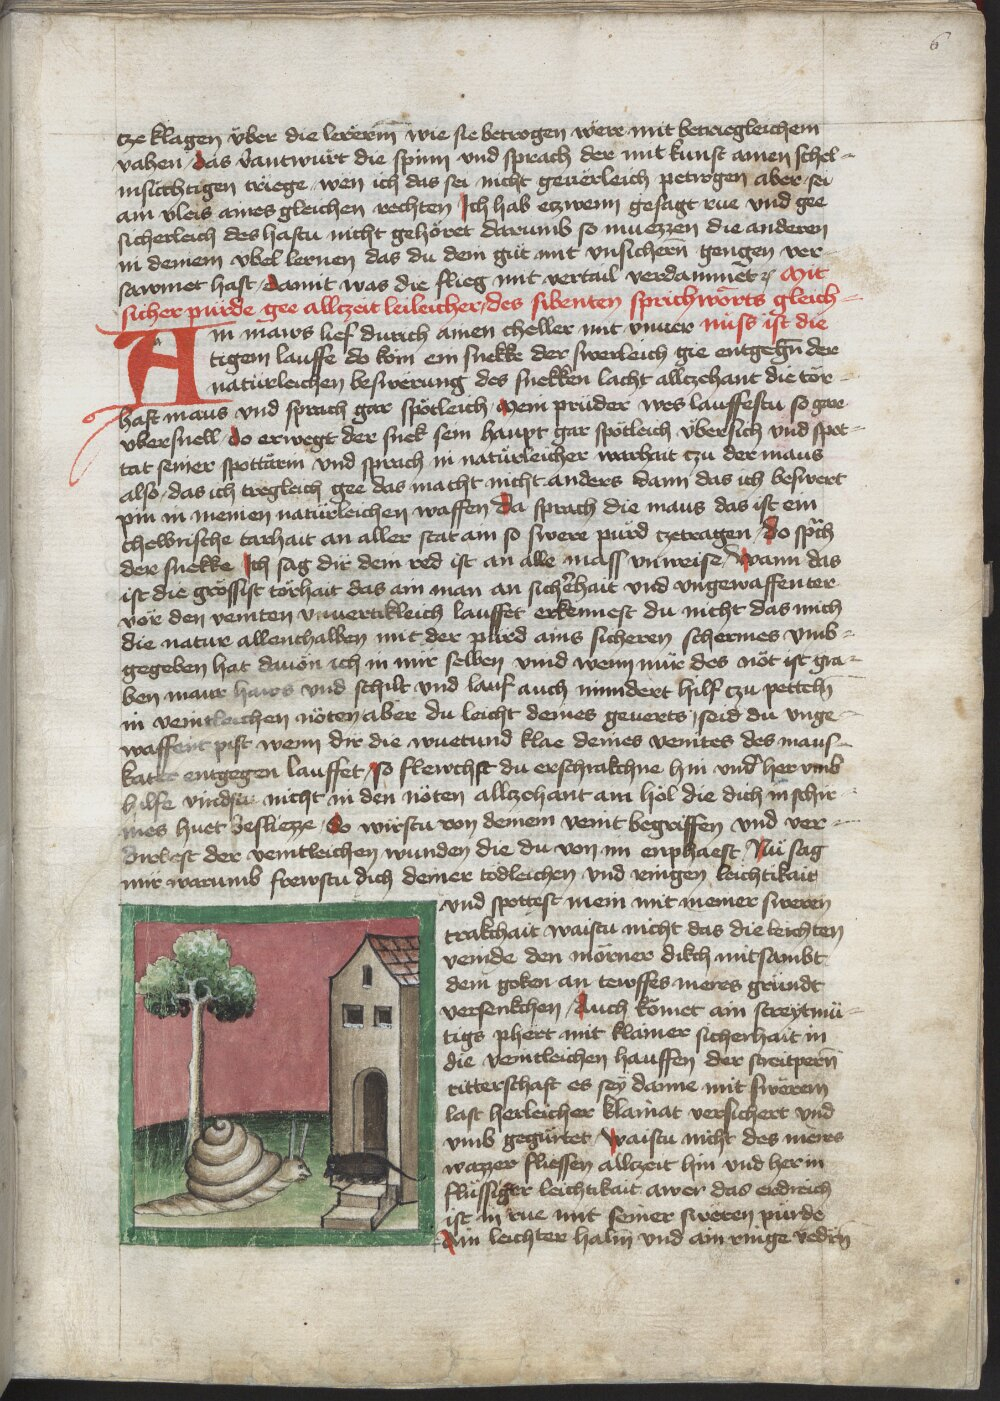 6
tze klagen vber die lererin wie sie betrogen were mit betrieglichem
vahen das v̄antwurt die spinn vnd sprach der mit kunst ainen schel-
insichtigen triege wen ich das sei nicht geuerleich petrogen aber sei
am vleis aines gleichen rechten Ich hab etzwenn gesagt rue vnd gee
sicherleich des hastu nicht gehöret darumb so muezzen die anderen
in deinem vbel lernen das du dem güt mit vnsichern gengen ver-
sawmet hast damit was die flieg mit vertail verdammet Mit
sicher pürde gee allczeit leileicher des sibenten sprichworts gleich-
in maws lief durich ainen cheller mit vnuer nuss ist die
A tigem lauffe do kom ein snekke der swerleich gie entgegn̄ der
natürleichen beswerung des snekken lacht allczehant die tör-
haft maus vnd sprach gar spötleich Mein prüder wes lauffestu so gar
vbersnell do erwegt der snek sein haupt gar spötleich vbersich vnd spot-
tat seiner spottärin vnd sprach in natürleicher warhait czu der maus
also das ich tregleich gee das macht nicht anders dann das ich beswert
pin in meinen natürleichen waffen Da sprach die maus das ist ein
chelbrische tarhait an aller stat ain so swere pürd czetragen do sp̄ch
der snekke Ich sag dir dein red ist an alle mass vnweise Wann das
ist die grössist törhait das ain man an sicherhait vnd vngewaffenter
vör den veinten vnuertikleich lauffet erkennest du nicht das mich
die natur allenthalben mit der pürd ains sicheren schermes vmb-
gegeben hat dauon ich in mir selben vind wenn mir des nöt ist gra-
ben maur haws vnd schilt vnd lauf auch nindert hilf czu petteln̄
in veintleichen nöten aber du leicht deines geuerts seid du vnge-
waffent pist wenn dir die wuetund klae deines veintes des maus-
kater entgegen lauffet so flewchst du erschrakchne hin vnd her vmb
hilfe vindestu nicht in den nöten allczehant ain hol die dich in schir-
mes huet besliezze do wirstu von deinem veint begriffen vnd ver-
dirbest der veintleichen wunden die du von im enphaest Nu sag
mir warumb frewstu dich deiner tödleichen vnd ringen leichtikait
vnd spottest mein mit meiner sweren
trakchait waistu nicht das die leichten
veinde den mörner dikch mitsambt
dem goken an tewffes meres gründt
versenkchen Auch kömet ain streytmü-
tigs phert mit klainer sicherhait in
die veintleichen hauffen der streitpern̄
ritterschaft es sey danne mit swërem
last herleicher klainat versichert vnd
vmb gegürtet Waistu nicht des meres
wazzer fliessen allczeit hin vnd her in
flüssiger leichtikait awer das erdreich
ist in rue mit seiner sweren pürde
Ain leichter halm vnd ain ringe vedrn